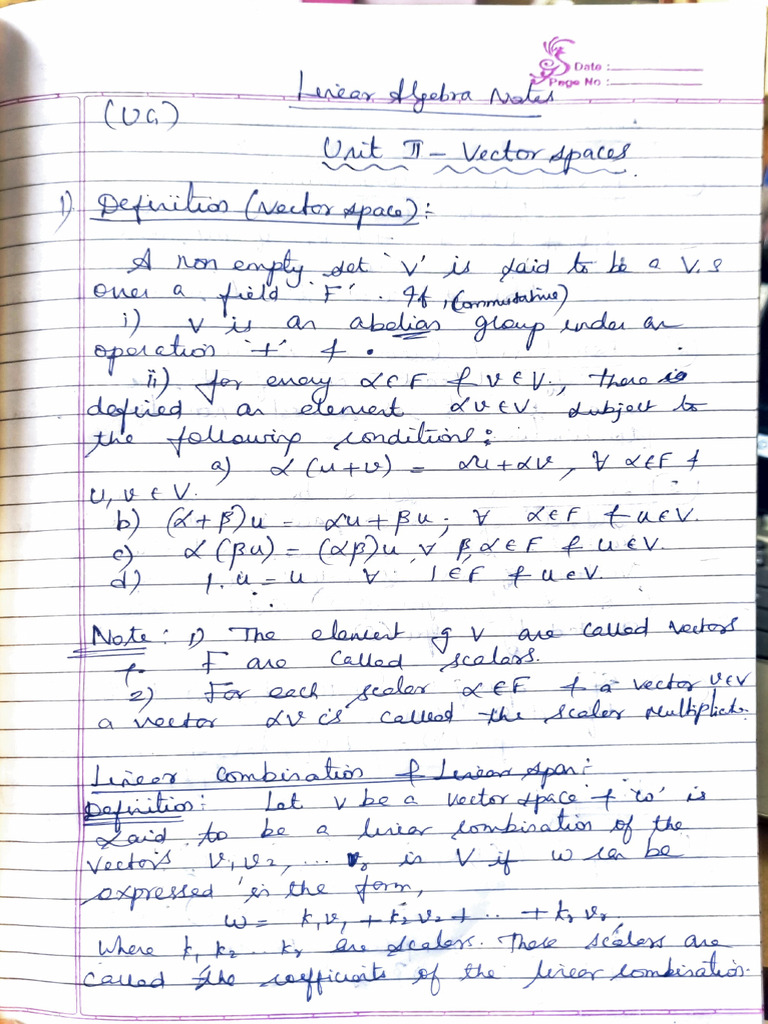 Date :
Page No :
Linear Algebra Notes
(UG)
Unit II - Vector spaces.
1) Definition (Vector space) :
A non empty set 'V' is said to be a V.S
over a field 'F'. If, (commutative)
i) V is an abelian group under an
operation '+' & .
ii) for every α∈F & v∈V, there is
defined an element αv∈V subject to
the following conditions :
a) α(u+v) = αu+αv, ∀ α∈F &
u, v ∈ V.
b) (α+β)u = αu+βu; ∀ α∈F & u∈V.
c) α(βu) = (αβ)u ∀ β,α∈F & u∈V.
d) 1.u = u ∀ 1∈F & u∈V.
Note : 1) The element of V are called vectors
& F are called scalars.
2) For each scalar α∈F & a vector v∈V
a vector αv is called the scalar multiplictn.
Linear Combination & Linear span :
Definition : Let V be a vector space & 'w' is
said to be a linear combination of the
vectors v₁,v₂,... vᵣ in V if w can be
expressed in the form,
w = k₁v₁ + k₂v₂ + .. + kᵣvᵣ.
Where k₁ k₂ ... kᵣ are scalars. These scalars are
called the coefficients of the linear combination.